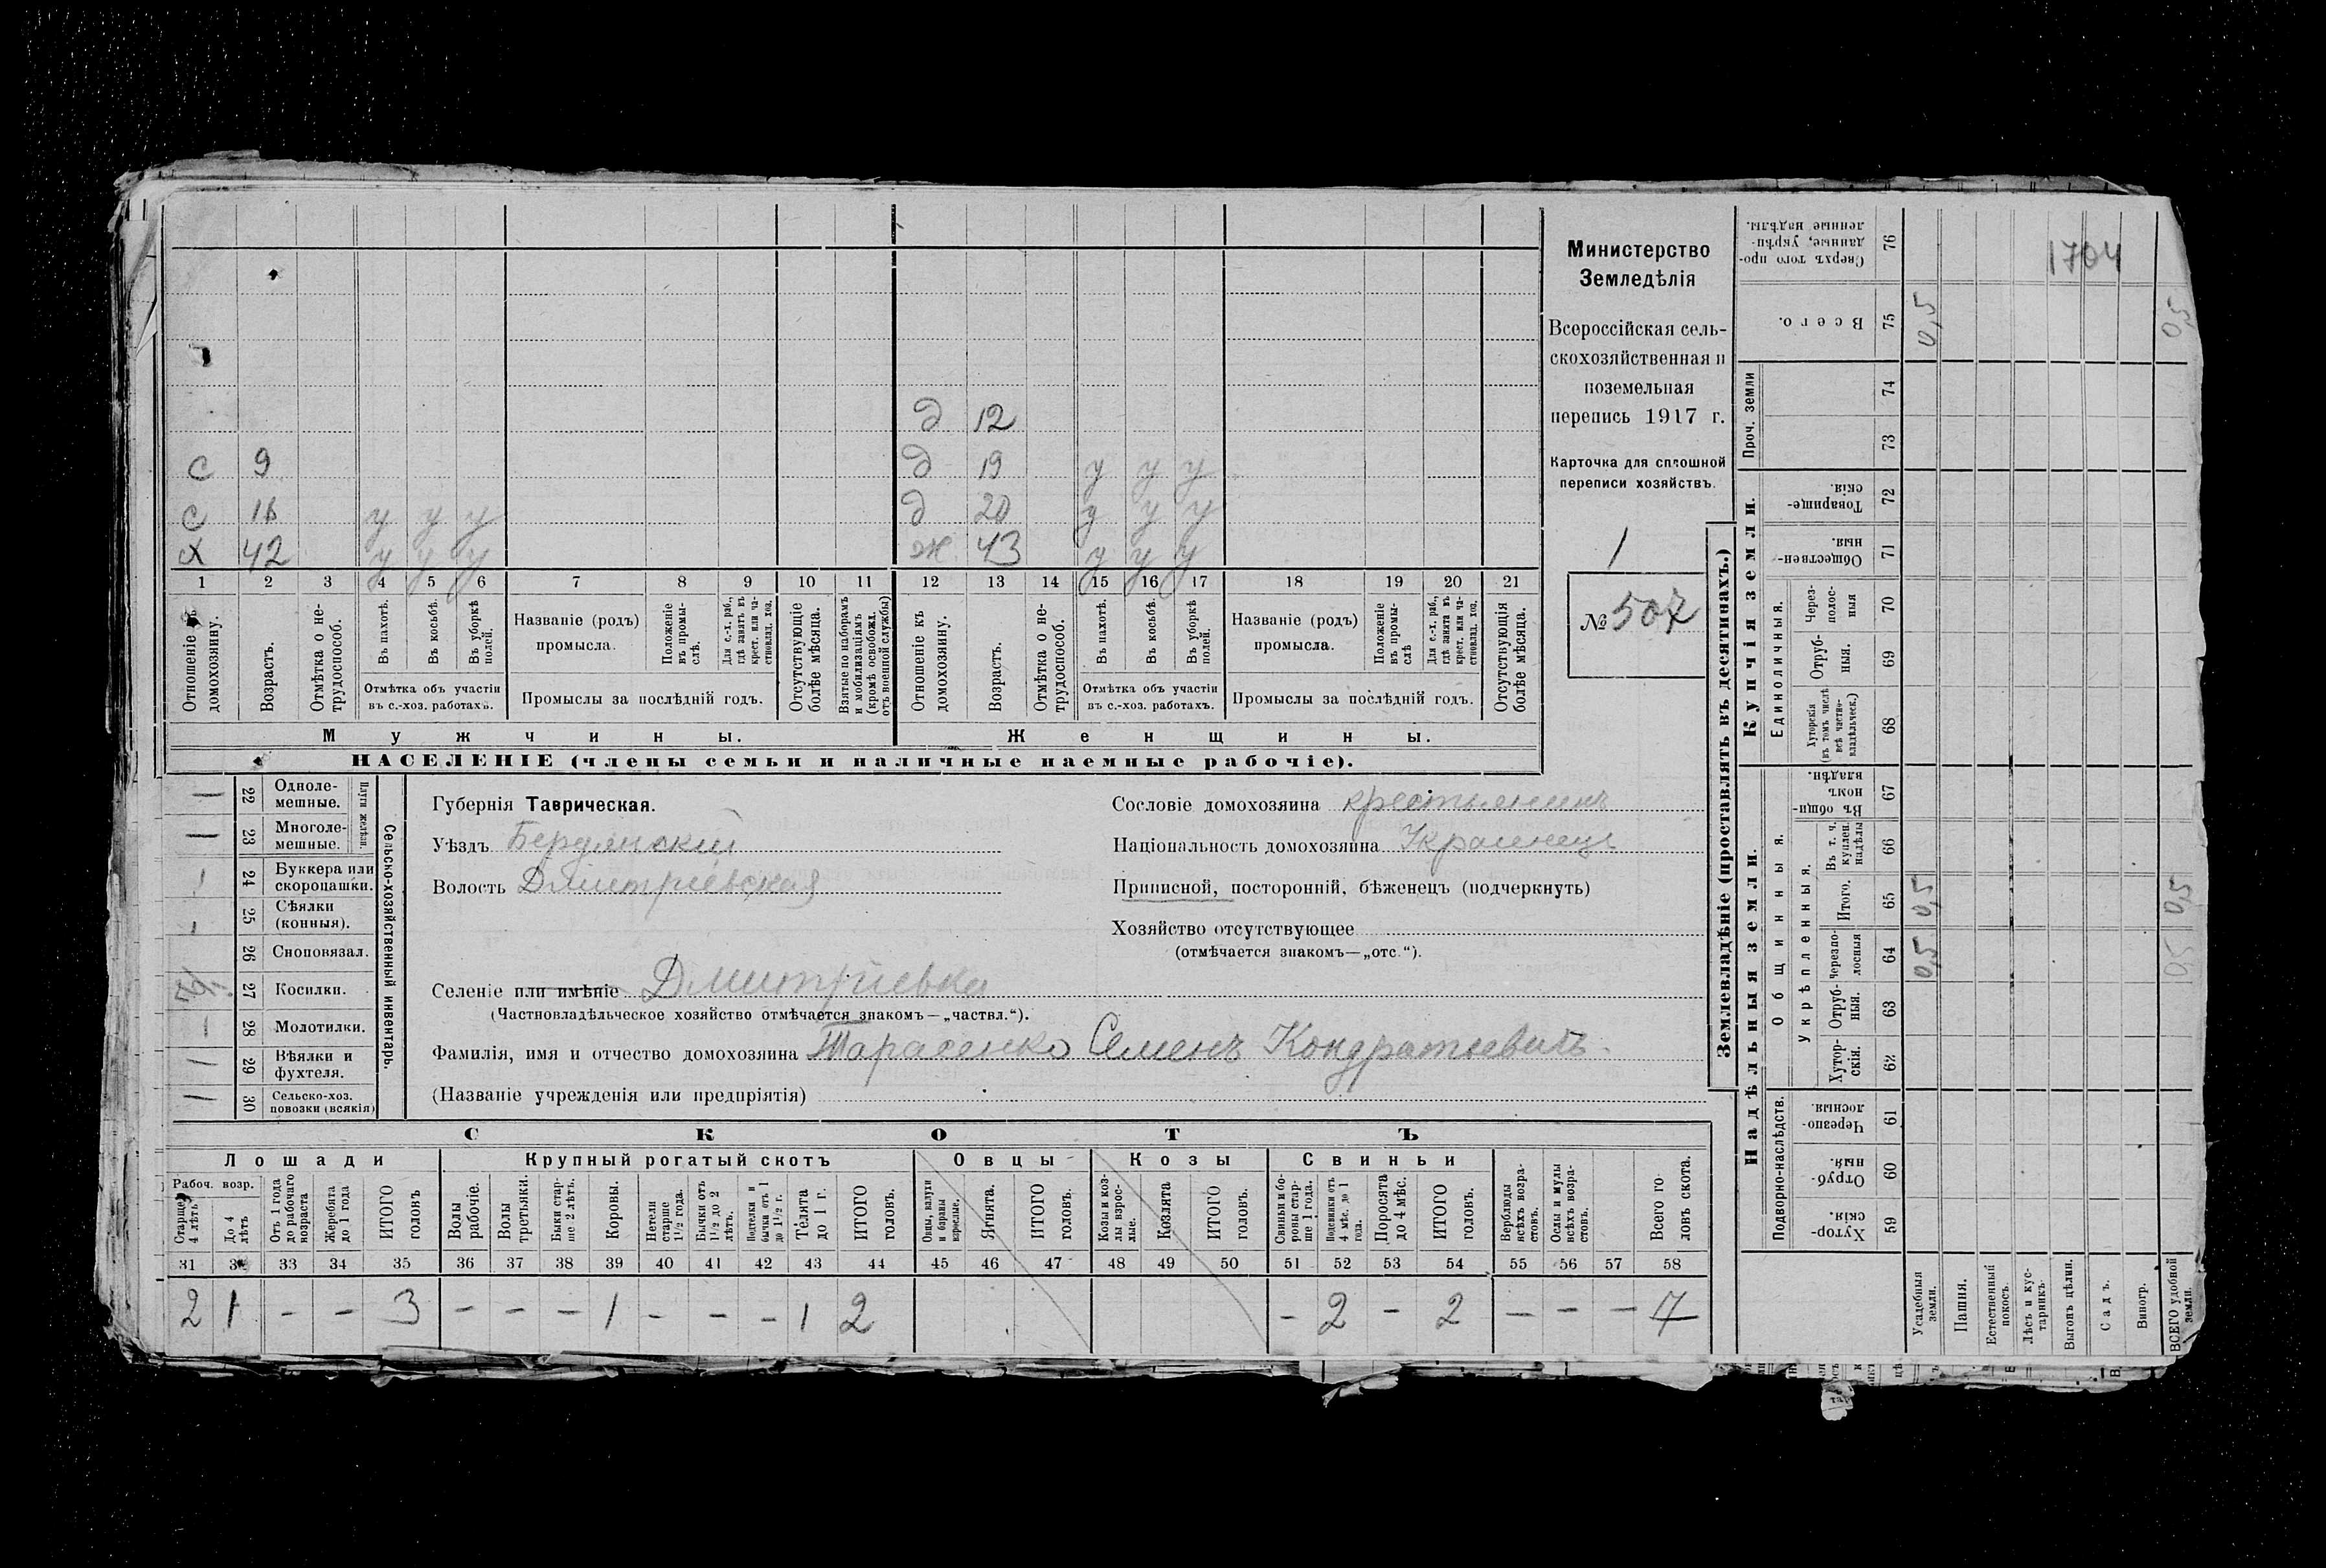 д 12
с 9 д 19 у у у
с 16 у у у д 20 у у у
х 42 у у у ж 43 у у у
1 2 3 4 5 6 7 8 9 10 11 12 13 14 15 16 17 18 19 20 21
Отношеніе къ домохозяину.
Возрастъ.
Отмѣтка о нетрудоспособ.
Въ пахотѣ.
Въ косьбѣ.
Въ уборкѣ полей.
Отмѣтка объ участіи
въ с.-хоз. работахъ.
Названіе (родъ)
промысла.
Положеніе въ промыслѣ.
Для с.-х. раб., гдѣ занятъ въ крест. или частновлад. хоз.
Промыслы за послѣдній годъ.
Отсутствующіе болѣе мѣсяца.
Взятые по наборамъ и мобилизаціямъ (кромѣ освобожд. отъ военной службы)
Отношеніе къ домохозяину.
Возрастъ.
Отмѣтка о нетрудоспособ.
Въ пахотѣ.
Въ косьбѣ.
Въ уборкѣ полей.
Отмѣтка объ участіи
въ с.-хоз. работахъ.
Названіе (родъ)
промысла.
Положеніе въ промыслѣ
Для с.-х. раб., гдѣ занята въ крест. или частновлад. хоз.
Промыслы за послѣдній годъ.
Отсутствующія болѣе мѣсяца.
Мужчины. Женщины.
НАСЕЛЕНІЕ (члены семьи и наличные наемные рабочіе).
Министерство
Земледѣлія
Всероссійская сель-
скохозяйственная и
поземельная
перепись 1917 г.
Карточка для сплошной
переписи хозяйствъ.
1
№ 507
Сельско-хозяйственный инвентарь.
Плуги желѣзн.
22 Одноле-
мешные.
23 Многоле-
мешные.
24 Буккера или
скоропашки.
25 Сѣялки
(конныя).
26 Сноповязал.
27 Косилки.
28 Молотилки.
29 Вѣялки и
фухтеля.
30 Сельско-хоз.
повозки (всякія)
Губернія Таврическая.
Уѣздъ Бердянскій
Волость Дмитріевская
Сословіе домохозяина крестьянинъ
Національность домохозяина Украинецъ
Приписной, посторонній, бѣженецъ (подчеркнуть)
Хозяйство отсутствующее
(отмѣчается знакомъ—„отс.“).
Селеніе или имѣніе Дмитріевка
(Частновладѣльческое хозяйство отмѣчается знакомъ—„частвл.“).
Фамилія, имя и отчество домохозяина Тарасенко Семенъ Кондратьевичъ.
(Названіе учрежденія или предпріятія)
СКОТЪ
Лошади Крупный рогатый скотъ Овцы Козы Свиньи
Рабоч. возр.
Старше 4 лѣтъ
До 4 лѣтъ
Отъ 1 года до рабочаго возраста
Жеребята до 1 года
ИТОГО головъ
Волы рабочіе.
Волы третьяки.
Быки старше 2 лѣтъ.
Коровы.
Нетели старше 1½ года.
Бычки отъ 1½ до 2 лѣтъ.
Подтелки и бычки отъ 1 до 1½ г.
Телята до 1 г.
ИТОГО головъ.
Овцы, валухи и бараны взрослые.
Ягнята.
ИТОГО головъ.
Козы и козлы взрослые.
Козлята
ИТОГО головъ.
Свиньи и боровы старше 1 года.
Подсвинки отъ 4 мѣс. до 1 года.
Поросята до 4 мѣс.
ИТОГО головъ.
Верблюды всѣхъ возрастовъ.
Ослы и мулы всѣхъ возрастовъ.
Всего головъ скота.
31 32 33 34 35 36 37 38 39 40 41 42 43 44 45 46 47 48 49 50 51 52 53 54 55 56 57 58
2 1 - - 3 - - - 1 - - - 1 2 - 2 - 2 - - - 7
Землевладѣніе (проставлять въ десятинахъ.)
Купчія земли.
Надѣльныя земли.
1704
76 Сверхъ того проданные, укрѣпленные надѣлы.
75 Всего. 0,5 0,5
Проч. земли
74
73
72 Товарищескія.
71 Общественныя.
Единоличныя.
70 Через-
полос-
ныя
69 Отруб-
ныя.
68 Хуторскія
(въ томъ числѣ
всѣ частно-
владѣльческ.)
Общинныя.
67 Въ общинномъ владѣн.
Укрѣпленныя.
66 Въ т. ч.
куплен.
надѣлы
65 Итого. 0,5 0,5
64 Черезполосныя 0,5 0,5
63 Отруб-
ныя.
62 Хутор-
скія.
Подворно-наслѣдств.
61 Черезполосныя.
60 Отрубныя.
59 Хуторскія.
Усадебныя земли.
Пашня.
Естественный покосъ.
Лѣсъ и кустарникъ.
Выгонъ цѣлин.
Садъ.
Виногр.
ВСЕГО удобной земли.